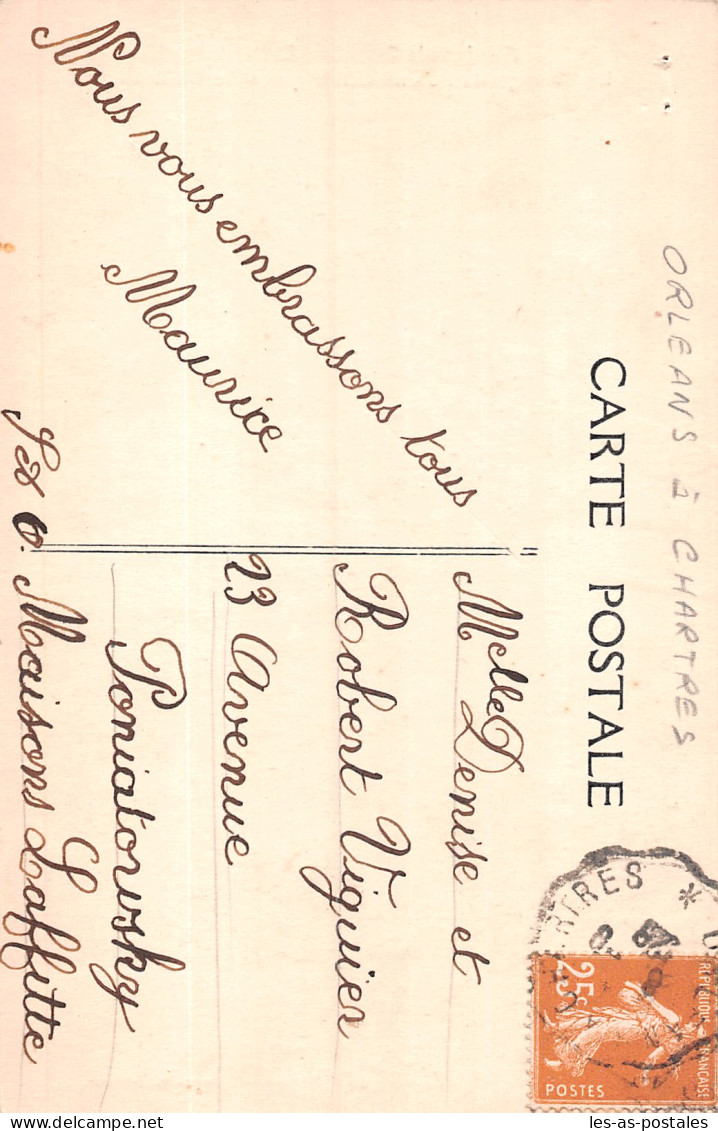 ORLEANS à CHARTRES
CARTE POSTALE
Nous vous embrassons tous
Maurice
Melle Denise et
Robert Viguier
23 Avenue
Poniatowsky
Maisons Laffitte
S et O.
RTRES *
REPUBLIQUE FRANCAISE
25c
POSTES
les-as-postales